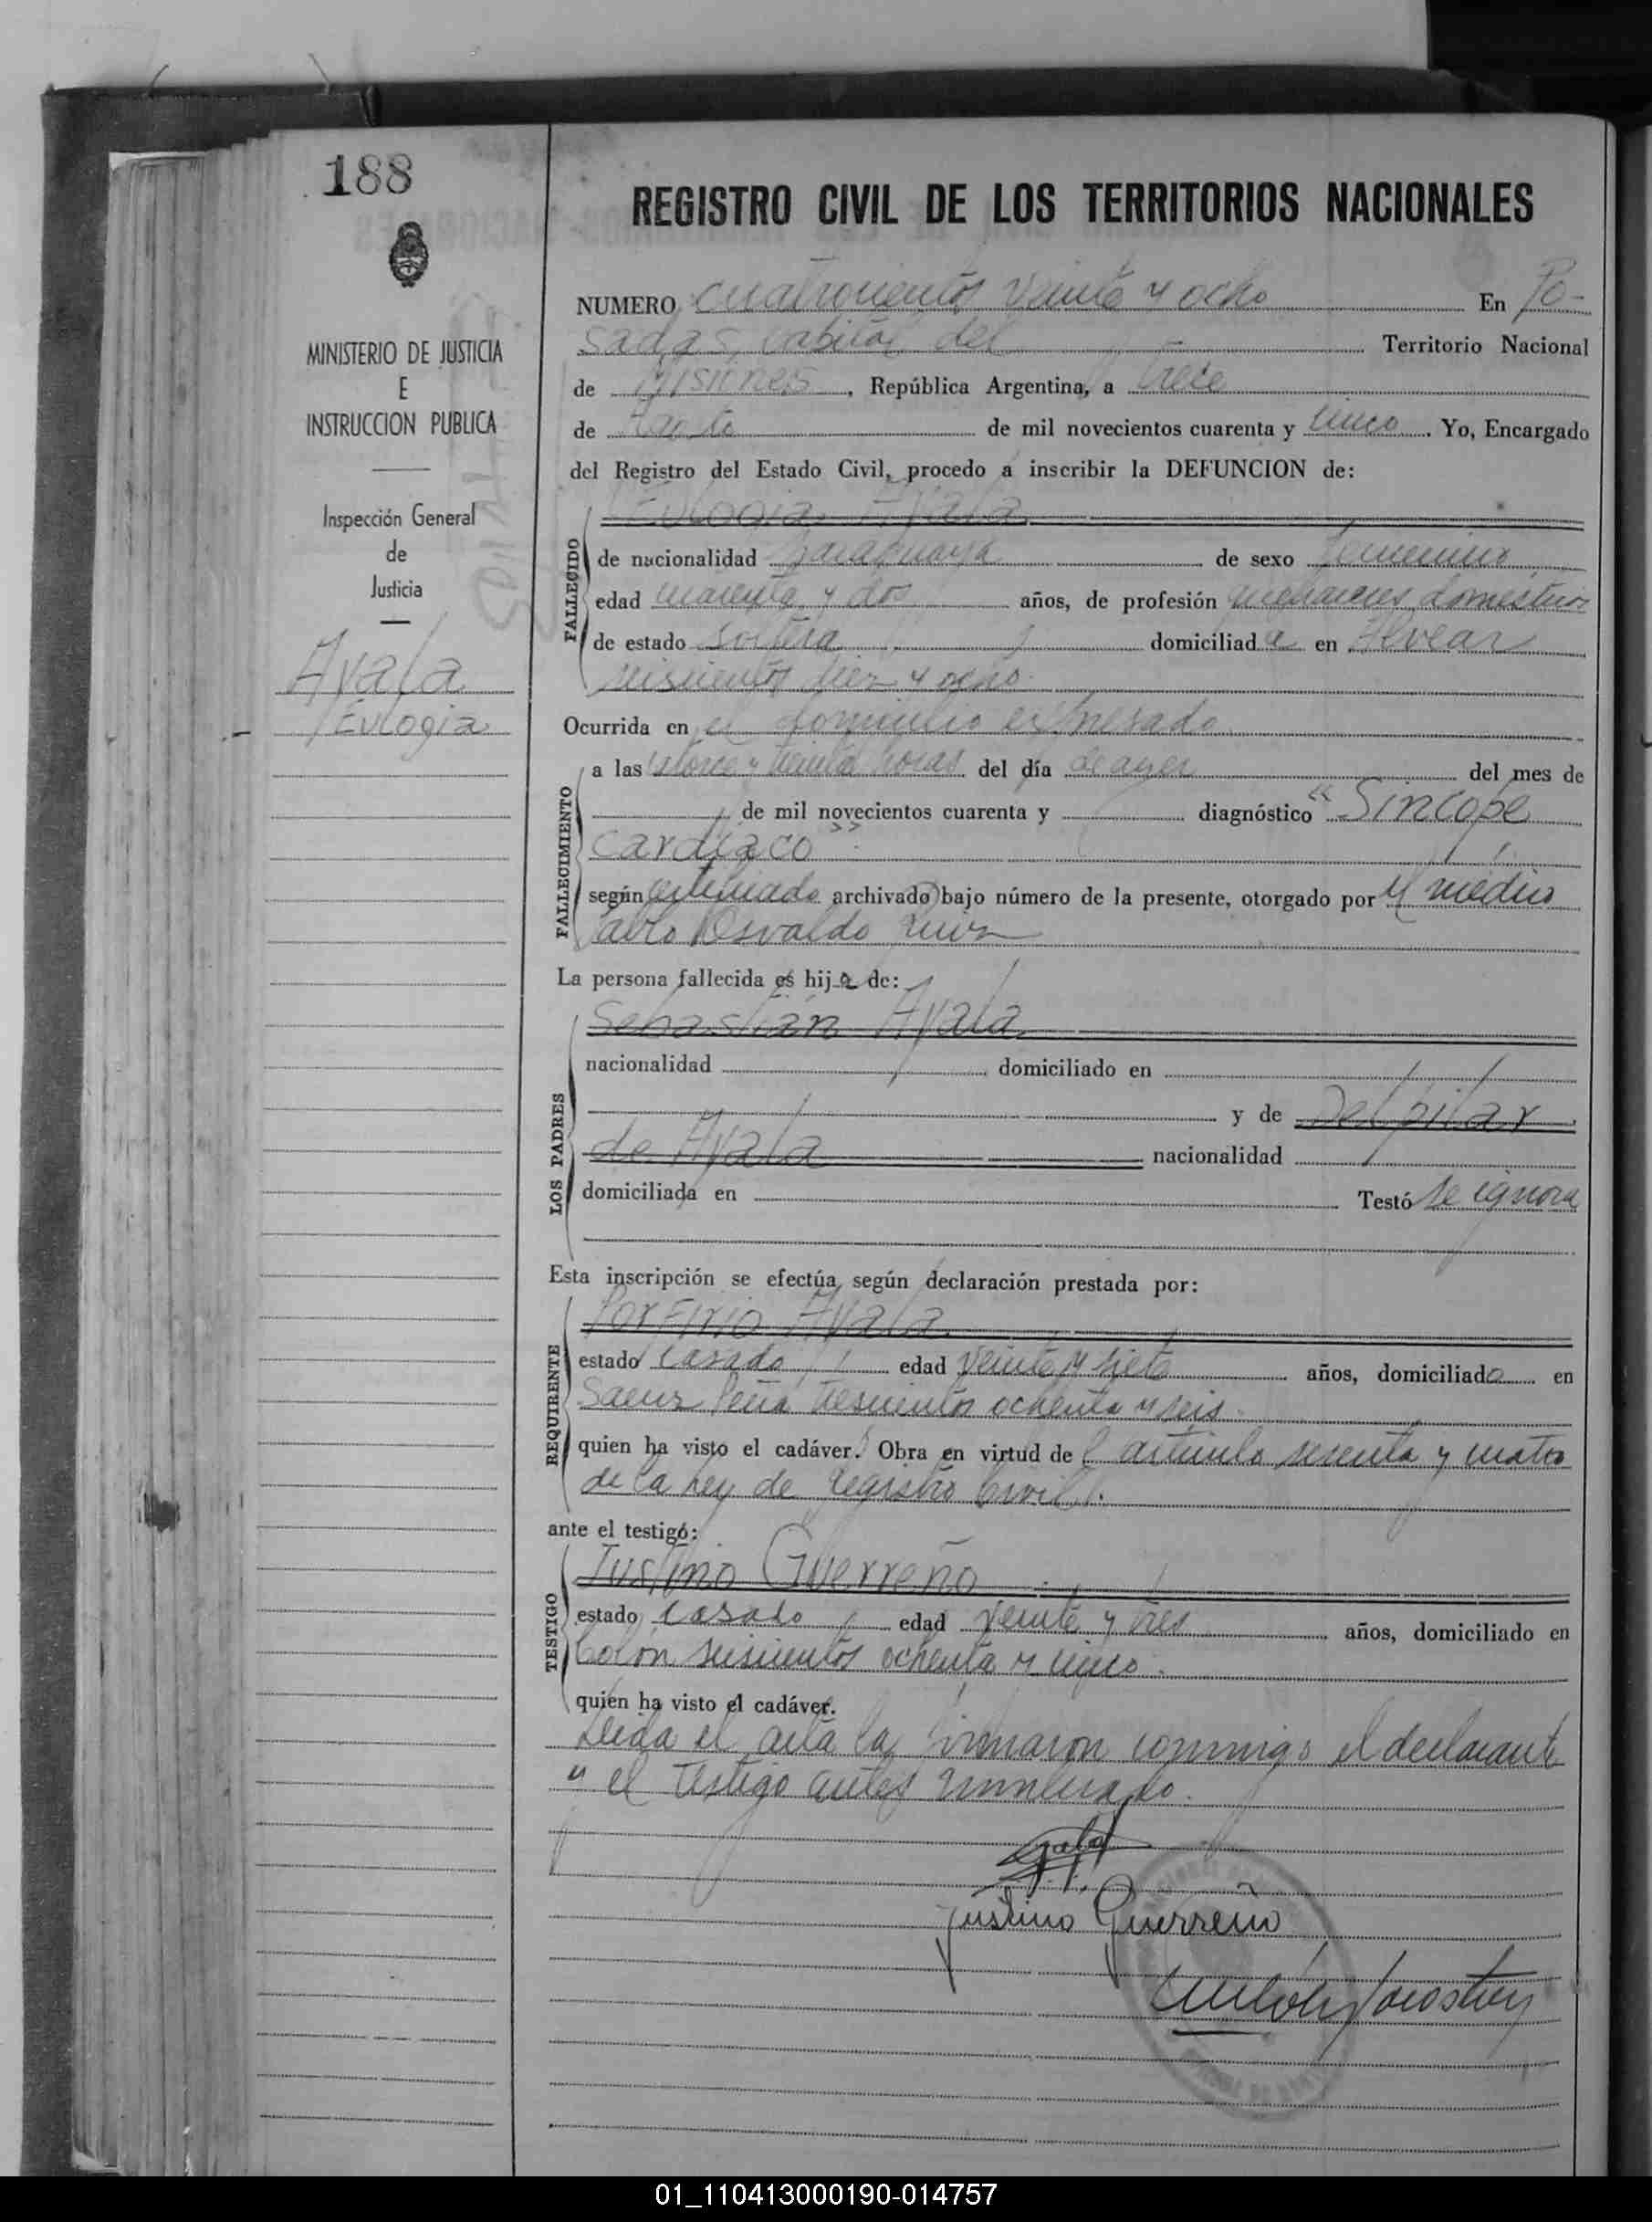 188
REGISTRO CIVIL DE LOS TERRITORIOS NACIONALES
MINISTERIO DE JUSTICIA
E
INSTRUCCION PUBLICA
Inspección General
de
Justicia
Ayala
Eulogia
NUMERO cuatrocientos veinte y ocho En Po-
sadas, capital del Territorio Nacional
de Misiones, República Argentina, a trece
de de mil novecientos cuarenta y cinco. Yo, Encargado
del Registro del Estado Civil, procedo a inscribir la DEFUNCION de:
Eulogia Ayala
FALLECIDO
de nacionalidad paraguaya de sexo femenino,
edad cuarenta y dos años, de profesión quehaceres domésticos
de estado soltera domiciliada en Alvear
seiscientos diez y ocho.
Ocurrida en el domicilio expresado
FALLECIMIENTO
a las catorce y treinta horas del día de ayer del mes de
de mil novecientos cuarenta y diagnóstico "Síncope
cardíaco".
según certificado archivado bajo número de la presente, otorgado por el médico
Pablo Osvaldo Ruiz
La persona fallecida es hija de:
LOS PADRES
Sebastián Ayala
nacionalidad domiciliado en
y de Del pilar
de Ayala nacionalidad
domiciliada en Testó se ignora
Esta inscripción se efectúa según declaración prestada por:
REQUIRENTE
Porfirio Ayala
estado casado, edad veinte y siete años, domiciliado en
Saenz Peña trescientos ochenta y seis.
quien ha visto el cadáver. Obra en virtud del artículo sesenta y cuatro
de la Ley de registro Civil.
ante el testigo:
TESTIGO
Justino Guerreño
estado casado, edad veinte y tres años, domiciliado en
Colón seiscientos ochenta y cinco.
quien ha visto el cadáver.
Leída el acta la firmaron conmigo el declarante
y el testigo antes nombrado.
Justino Guerreño
01_110413000190-014757